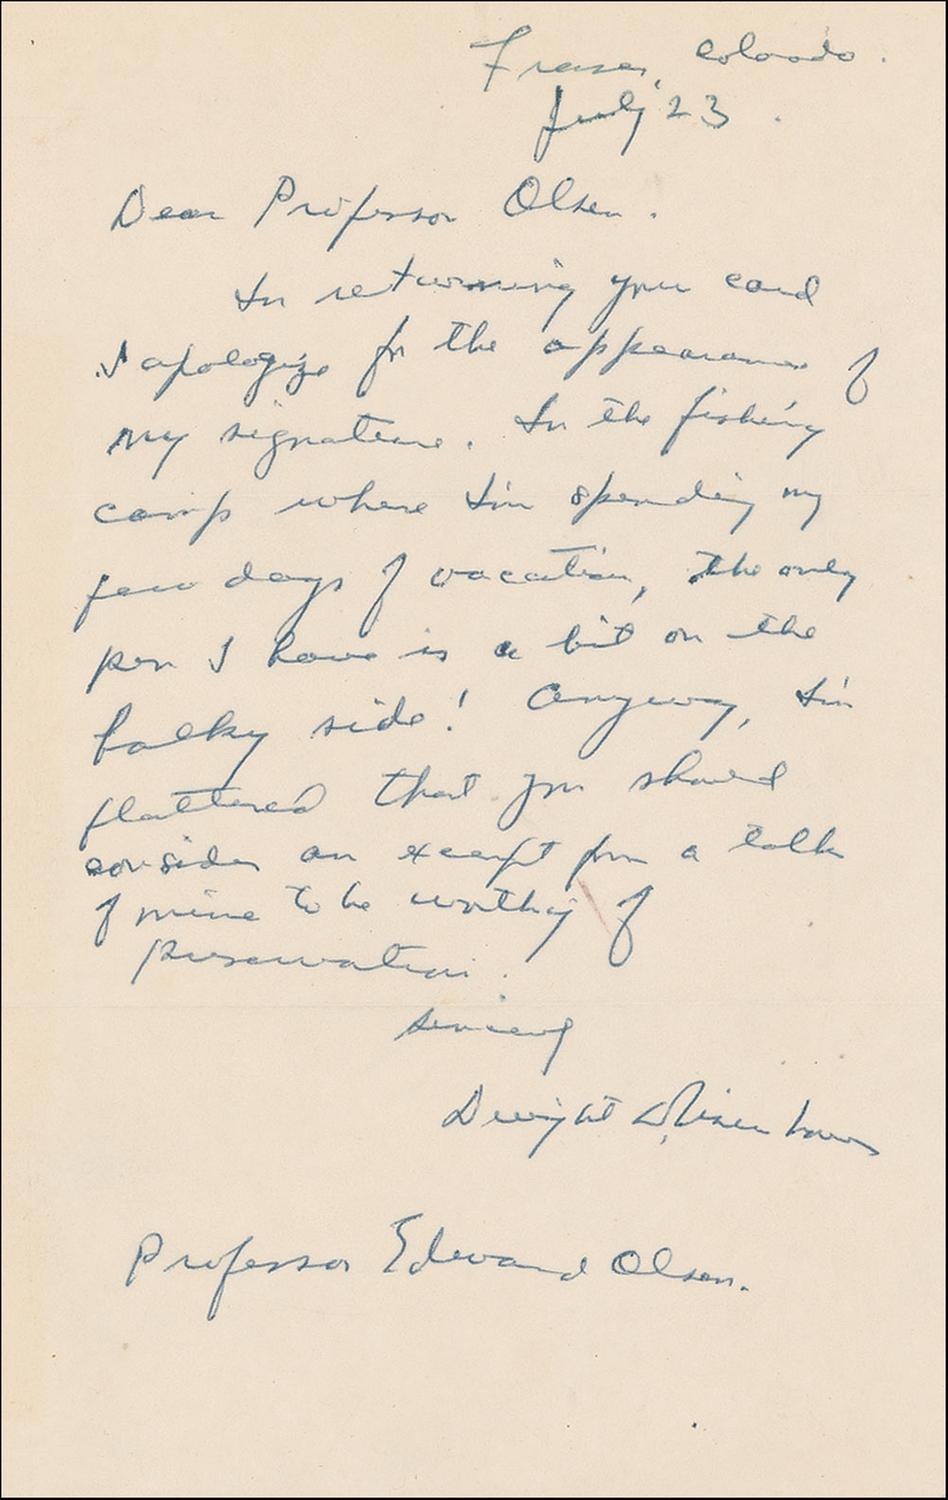 Fraser, Colorado.
July 23.
Dear Professor Olsen.
In returning your card
I apologize for the appearance of
my signature. In the fishing
camp where I'm spending my
few days of vacation, the only
pen I have is a bit on the
balky side! Anyway, I'm
flattered that you should
consider an excerpt from a talk
of mine to be worthy of
preservation.
Sincerely
Dwight D Eisenhower
Professor Edward Olsen.